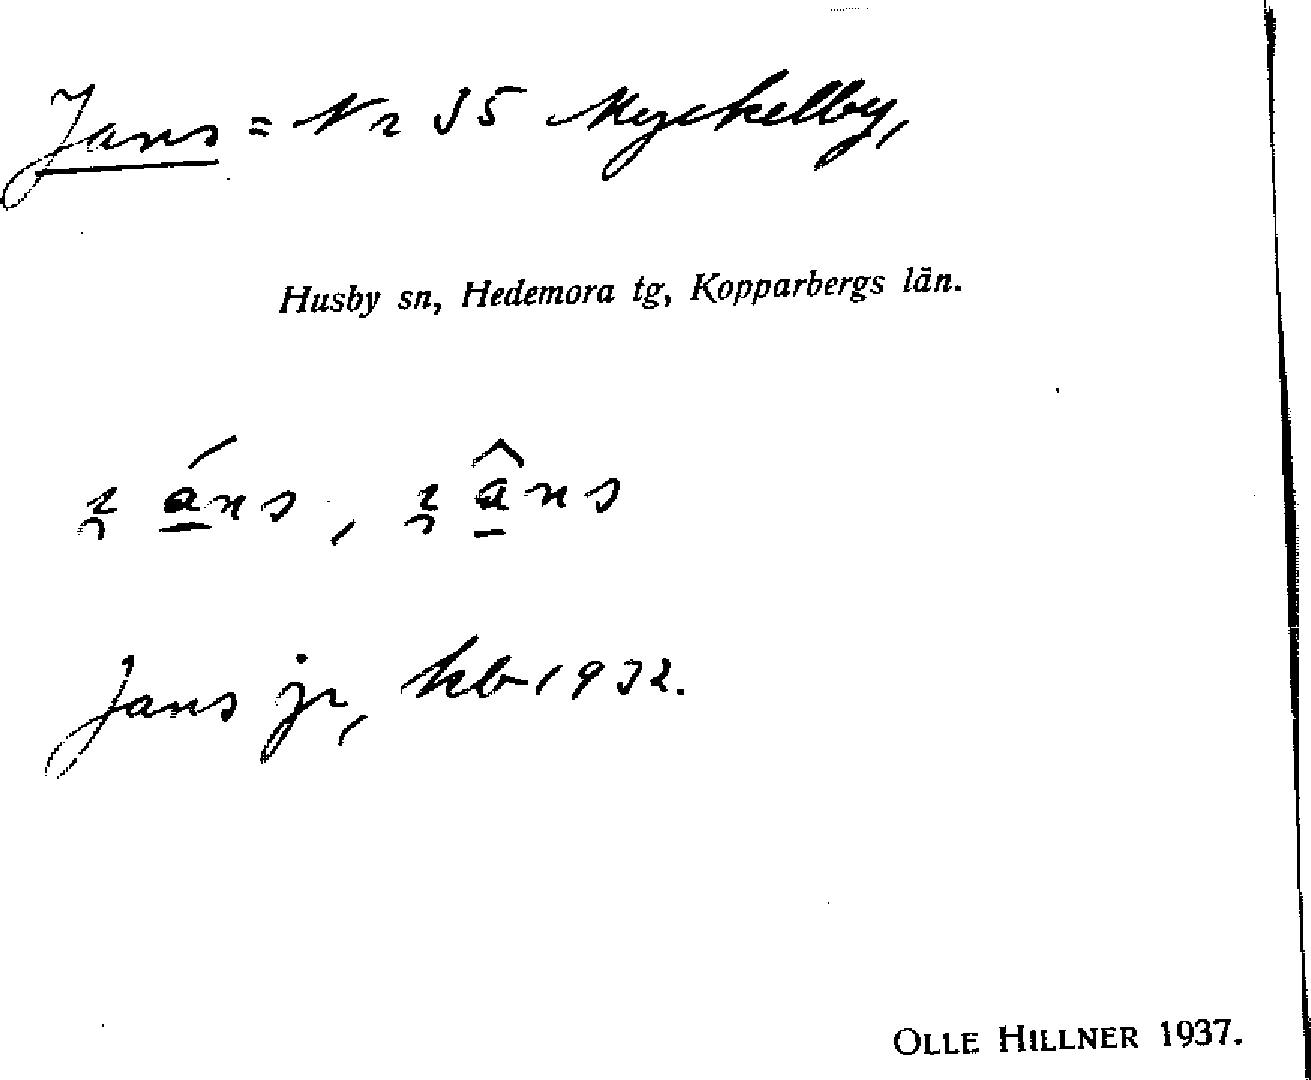 Jans = Nr 35 Myckelby,
Husby sn, Hedemora tg, Kopparbergs län.
Jans jr, kb 1932.
OLLE HILLNER 1937.